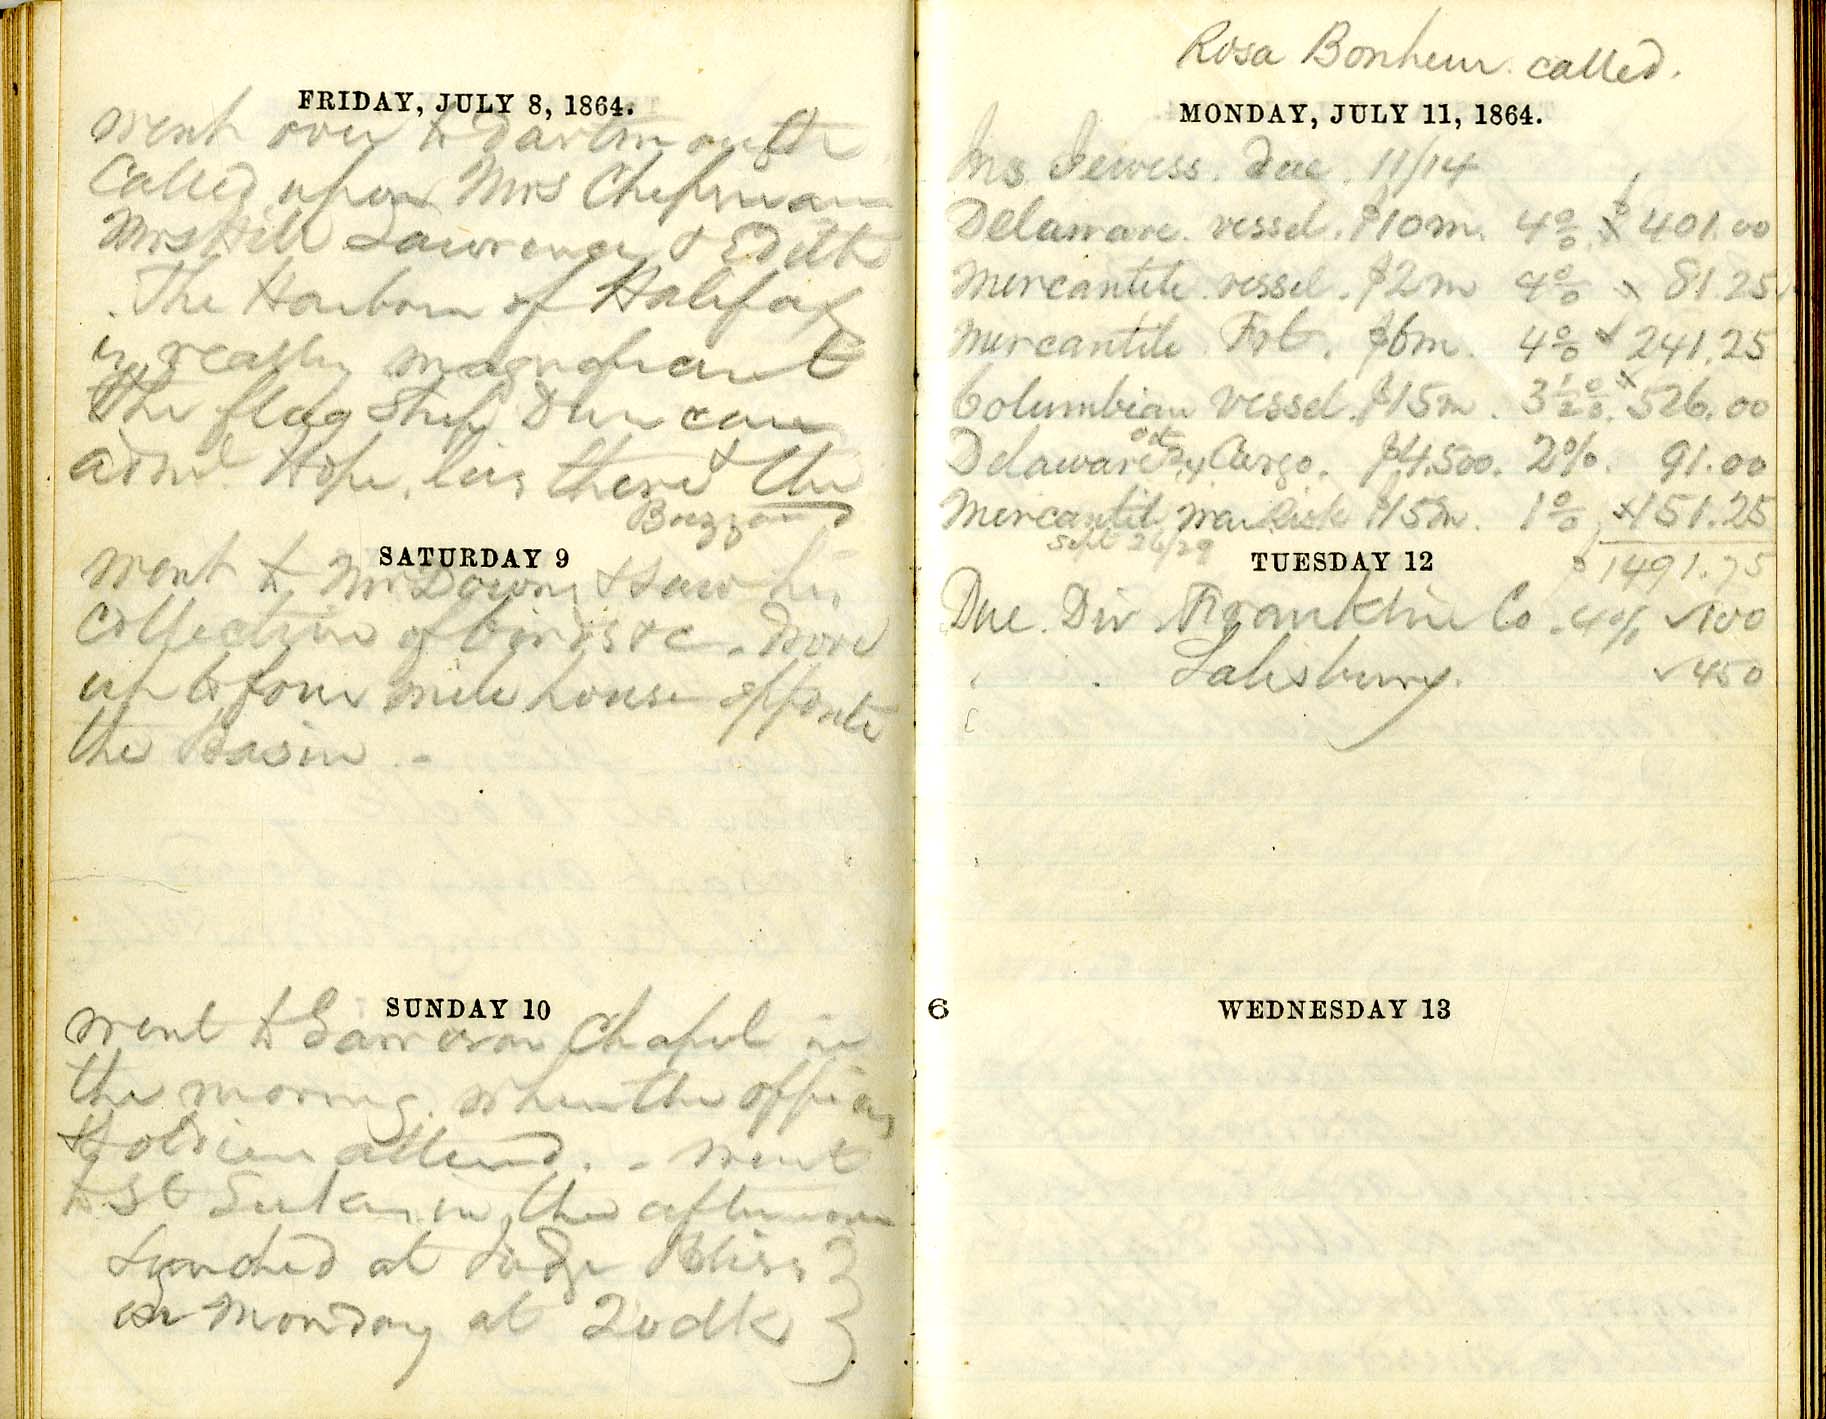 FRIDAY, JULY 8, 1864.
went over to Dartmouth
Called upon Mrs Chipman
Mrs Hill Lawrence & Edith
. The Harbour of Halifax
is really magnificent
The flag Ship Duncan
Adml Hope, lies there & the
Buzzard
SATURDAY 9
went to Mr Downs & saw his
Collection of birds &c - Drove
up to four mile house opposite
the Basin . -
SUNDAY 10
went to Garrison Chapel in
the morning. when the officers
& soldiers attend. - went
to St Lukes in the afternoon
Lunched at Judge Bliss
on Monday at 2 oclk
Rosa Bonheur called.
MONDAY, JULY 11, 1864.
Ins Jewess. due. 11/14
Delaware. vessel. $10m. 4% $ 401.00
Mercantile vessel. $2m 4% x 81.25
Mercantile Frt. $6m. 4% x 241.25
Columbian vessel. $15m. 3 1/2 %. x 526.00
Delaware Cargo. $4.500. 2%. 91.00
Mercantile War Risk $15m. 1% x 151.25
Sept 26/29
$ 1491.75
TUESDAY 12
Due. Div Franklin Co. 4% ✓ 100
. . Salisbury. ✓ 450
6
WEDNESDAY 13